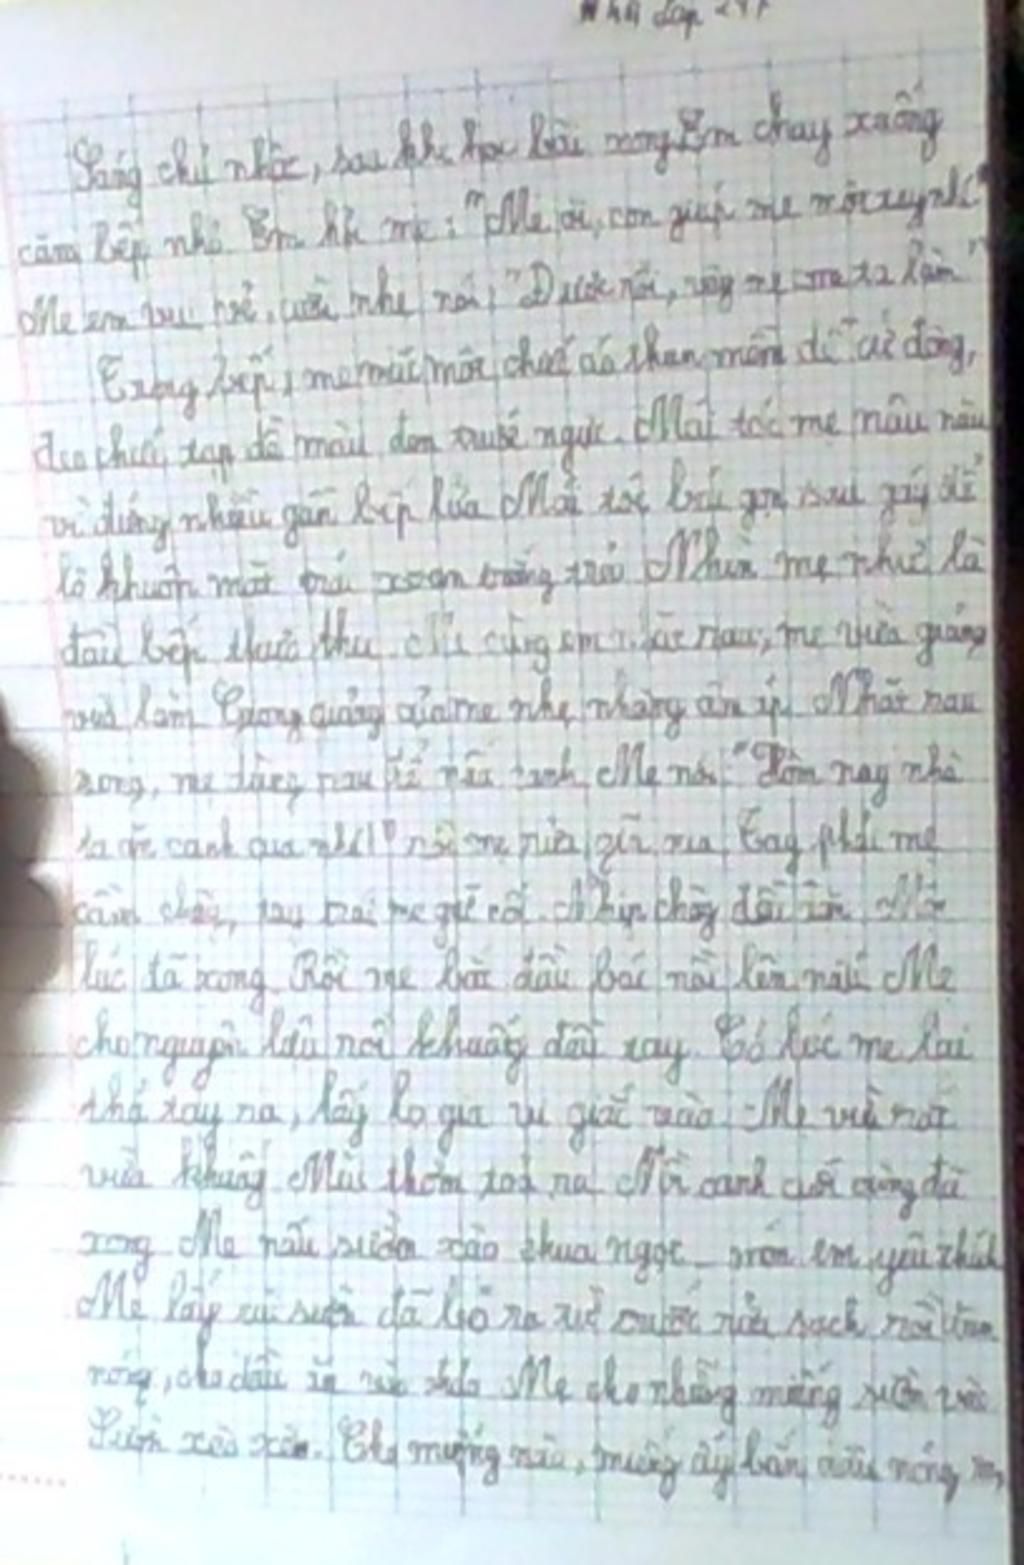 Sáng chủ nhật, sau khi học bài xong Em chạy xuống
căn bếp nhỏ. Em hỏi mẹ: "Mẹ ơi, con giúp mẹ một tay nhé"
Mẹ em vui vẻ, cười nhẹ nói: "Được rồi, mẹ ta làm"
Trong bếp, mẹ mặc một chiếc áo thun mềm dễ cử động,
đeo chiếc tạp dề màu đen trước ngực. Mái tóc mẹ nâu nâu
vì đứng nhiều gần bếp lửa Mái tóc búi gọn sau gáy để
lộ khuôn mặt trái xoan trắng trẻo Nhìn mẹ như là
đầu bếp thực thụ cùng em nhặt rau, mẹ vừa giảng
vừa làm Giọng giảng của mẹ nhẹ nhàng ấm áp Nhặt rau
xong, mẹ dùng rau để nấu canh Mẹ nói "Hôm nay nhà
ta ăn canh cua nhé!" mẹ giã cua Tay phải mẹ
cầm chày, tay trái mẹ giữ cối. Nhịp chày đều
lúc đã xong Rồi mẹ bắt đầu bắc nồi lên nấu Mẹ
cho nguyên liệu nồi khuấy đều tay Có lúc mẹ lại
thả tay ra, lấy lọ gia vị giắc vào Mẹ vừa
vừa khuấy Mùi thơm toả ra Nồi canh cuối cùng đã
xong Mẹ nấu sườn xào chua ngọt món em yêu thích
Mẹ lấy sườn đã bỏ ra nước rửa sạch rồi
nóng, cho dầu ăn vào Mẹ cho những miếng sườn vào
Sườn xèo xèo. Chị miếng này, miếng ấy bắn dầu nóng